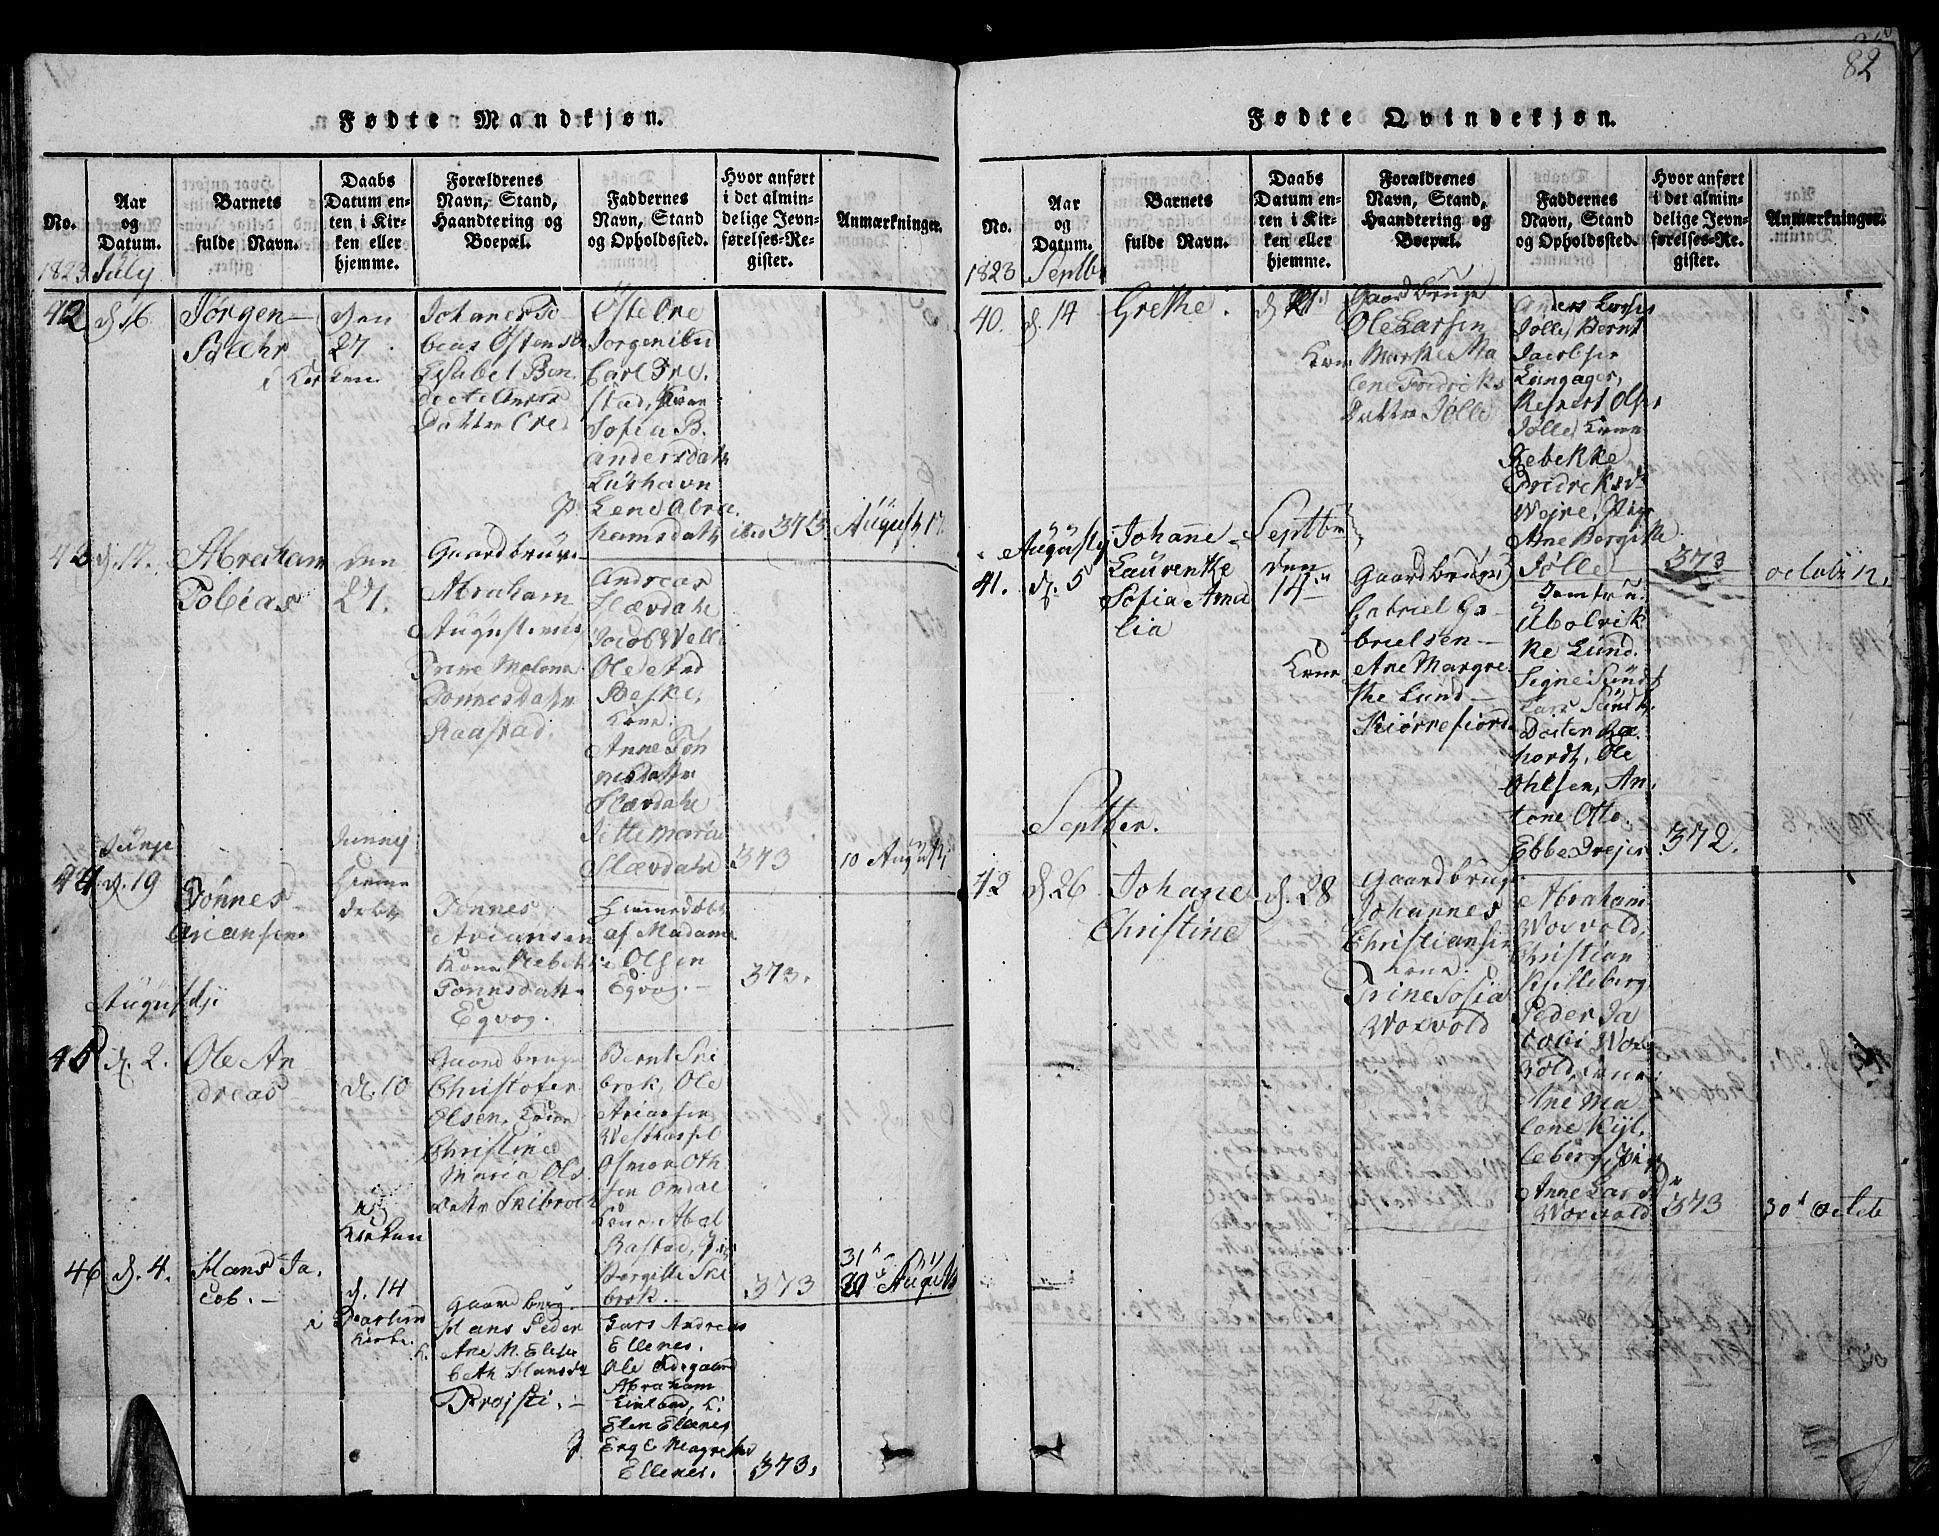 82
Fødte Mandkjøn.
No.
Aar
og
Datum.
Barnets
fulde Navn.
Daabs
Datum en-
ten i Kir-
ken eller
hjemme.
Forældrenes
Navn, Stand,
Haandtering og
Boepæl.
Faddernes
Navn, Stand
og Opholdssted.
Hvor anført
i det almin-
delige Jevn-
førelses-Re-
gister.
Anmærkninger.
1823 July
42
d. 16
Jørgen
Bæhr
den
27
i Kirken
Johanes To
bias Østensen
Lisabet Ben
Datter Ore
Østen Ore
Carl Ore
stad, Kone
Sofia B.
Andersdatr
Lushavn
Lene Abra
hamsdatr
ibid 373
August 17
43
d. 17.
Abraham
Tobias
den
27.
Gaardbruger
Abraham
Augustinus
Trine Malena
Tonnesdatr
Raastad.
Andreas
Slævdahl
Jacob Welle
Ole And
Beske,
Kone
Anne Ton
nesdatter
Slævdahl
Jette Maria
Slævdahl
373
10 August
44
d. 19
Tønnes
Ariansen
Hieme
døbt
Tønnes
Ariansen
Kone Rebek
Tonnesdatr
Egvog.
Hiemmedøbt
af Madame
Olsen
Egvog.
373.
Augusty
45
d. 2.
Ole An
dreas
d. 10
i
Kirken
Gaardbruger
Christofer
Olsen, Kone
Christine
Maria Ols
datr Skibrock
Bernt Ski
brok, Ole
Ariansen
Westhassel
Osmon Oth
sen Omdal
Kone Abel
Rastad, Pig
Borgille Ski
brok.
373
31 August
46
d. 4.
Hans Ja
cob.
d. 14
i
Kirke.
Gaardbrug.
Hans Peder
Ane M. Elisa
beth Hansdr
Lars Andreas
Ellenes.
Ole Ødegaard
Abraham
Elen Ellenes
P.
Eng E Magrethe
Ellenes.
373.
Fødte Qvindekjøn.
No.
Aar
og
Datum.
Barnets
fulde Navn.
Daabs
Datum en-
ten i Kir-
ken eller
hjemme.
Forældrenes
Navn, Stand,
Haandtering og
Boepæl.
Faddernes
Navn, Stand
og Opholdssted.
Hvor anført
i det almin-
delige Jevn-
førelses-Re-
gister.
Anmærkninger.
1823 Septbr
40.
d. 14
Grethe
d. 21
Gaardbruger
Ole Larsen
Kone Marthe Ma
lene Fredriks
Datter Jølle
Anders Larsen
Jølle, Bernt
Jacobsen
Langager,
Reinert Olsen
Jølle, Kone
Rebekke
Fredriksdr
Wejre, Pige
Ane Bergithe
Jølle
373
Augusty
41.
d. 5
Johanne
Laurenthe
Sofia Ama
lia
Septbr
den
14
Gaardbruger
Gabriel Ga
brielsen
Kone
Ane Margre
the Lund
Kiørrefiord
Jomfru
Ubolrik
ke Lund.
Signe Sundt
Lars Sundt,
hardt, Ole
Ohlsen, An
tone Otto.
Ebbe Drejer
372.
octobr 12.
Septber.
42
d. 26
Johane
Christine
d. 28
Gaardbrug
Johannes
Christiansen
Kone
Trine Sofia
Worvold
Abraham
Worvold,
Christian
Kylleberg
Peder Ja
cobi Wor
vold, Kone
Ane Ma
lene Kyl
leberg, Pige
Anne Lars dr
Worvold
373
30d octob